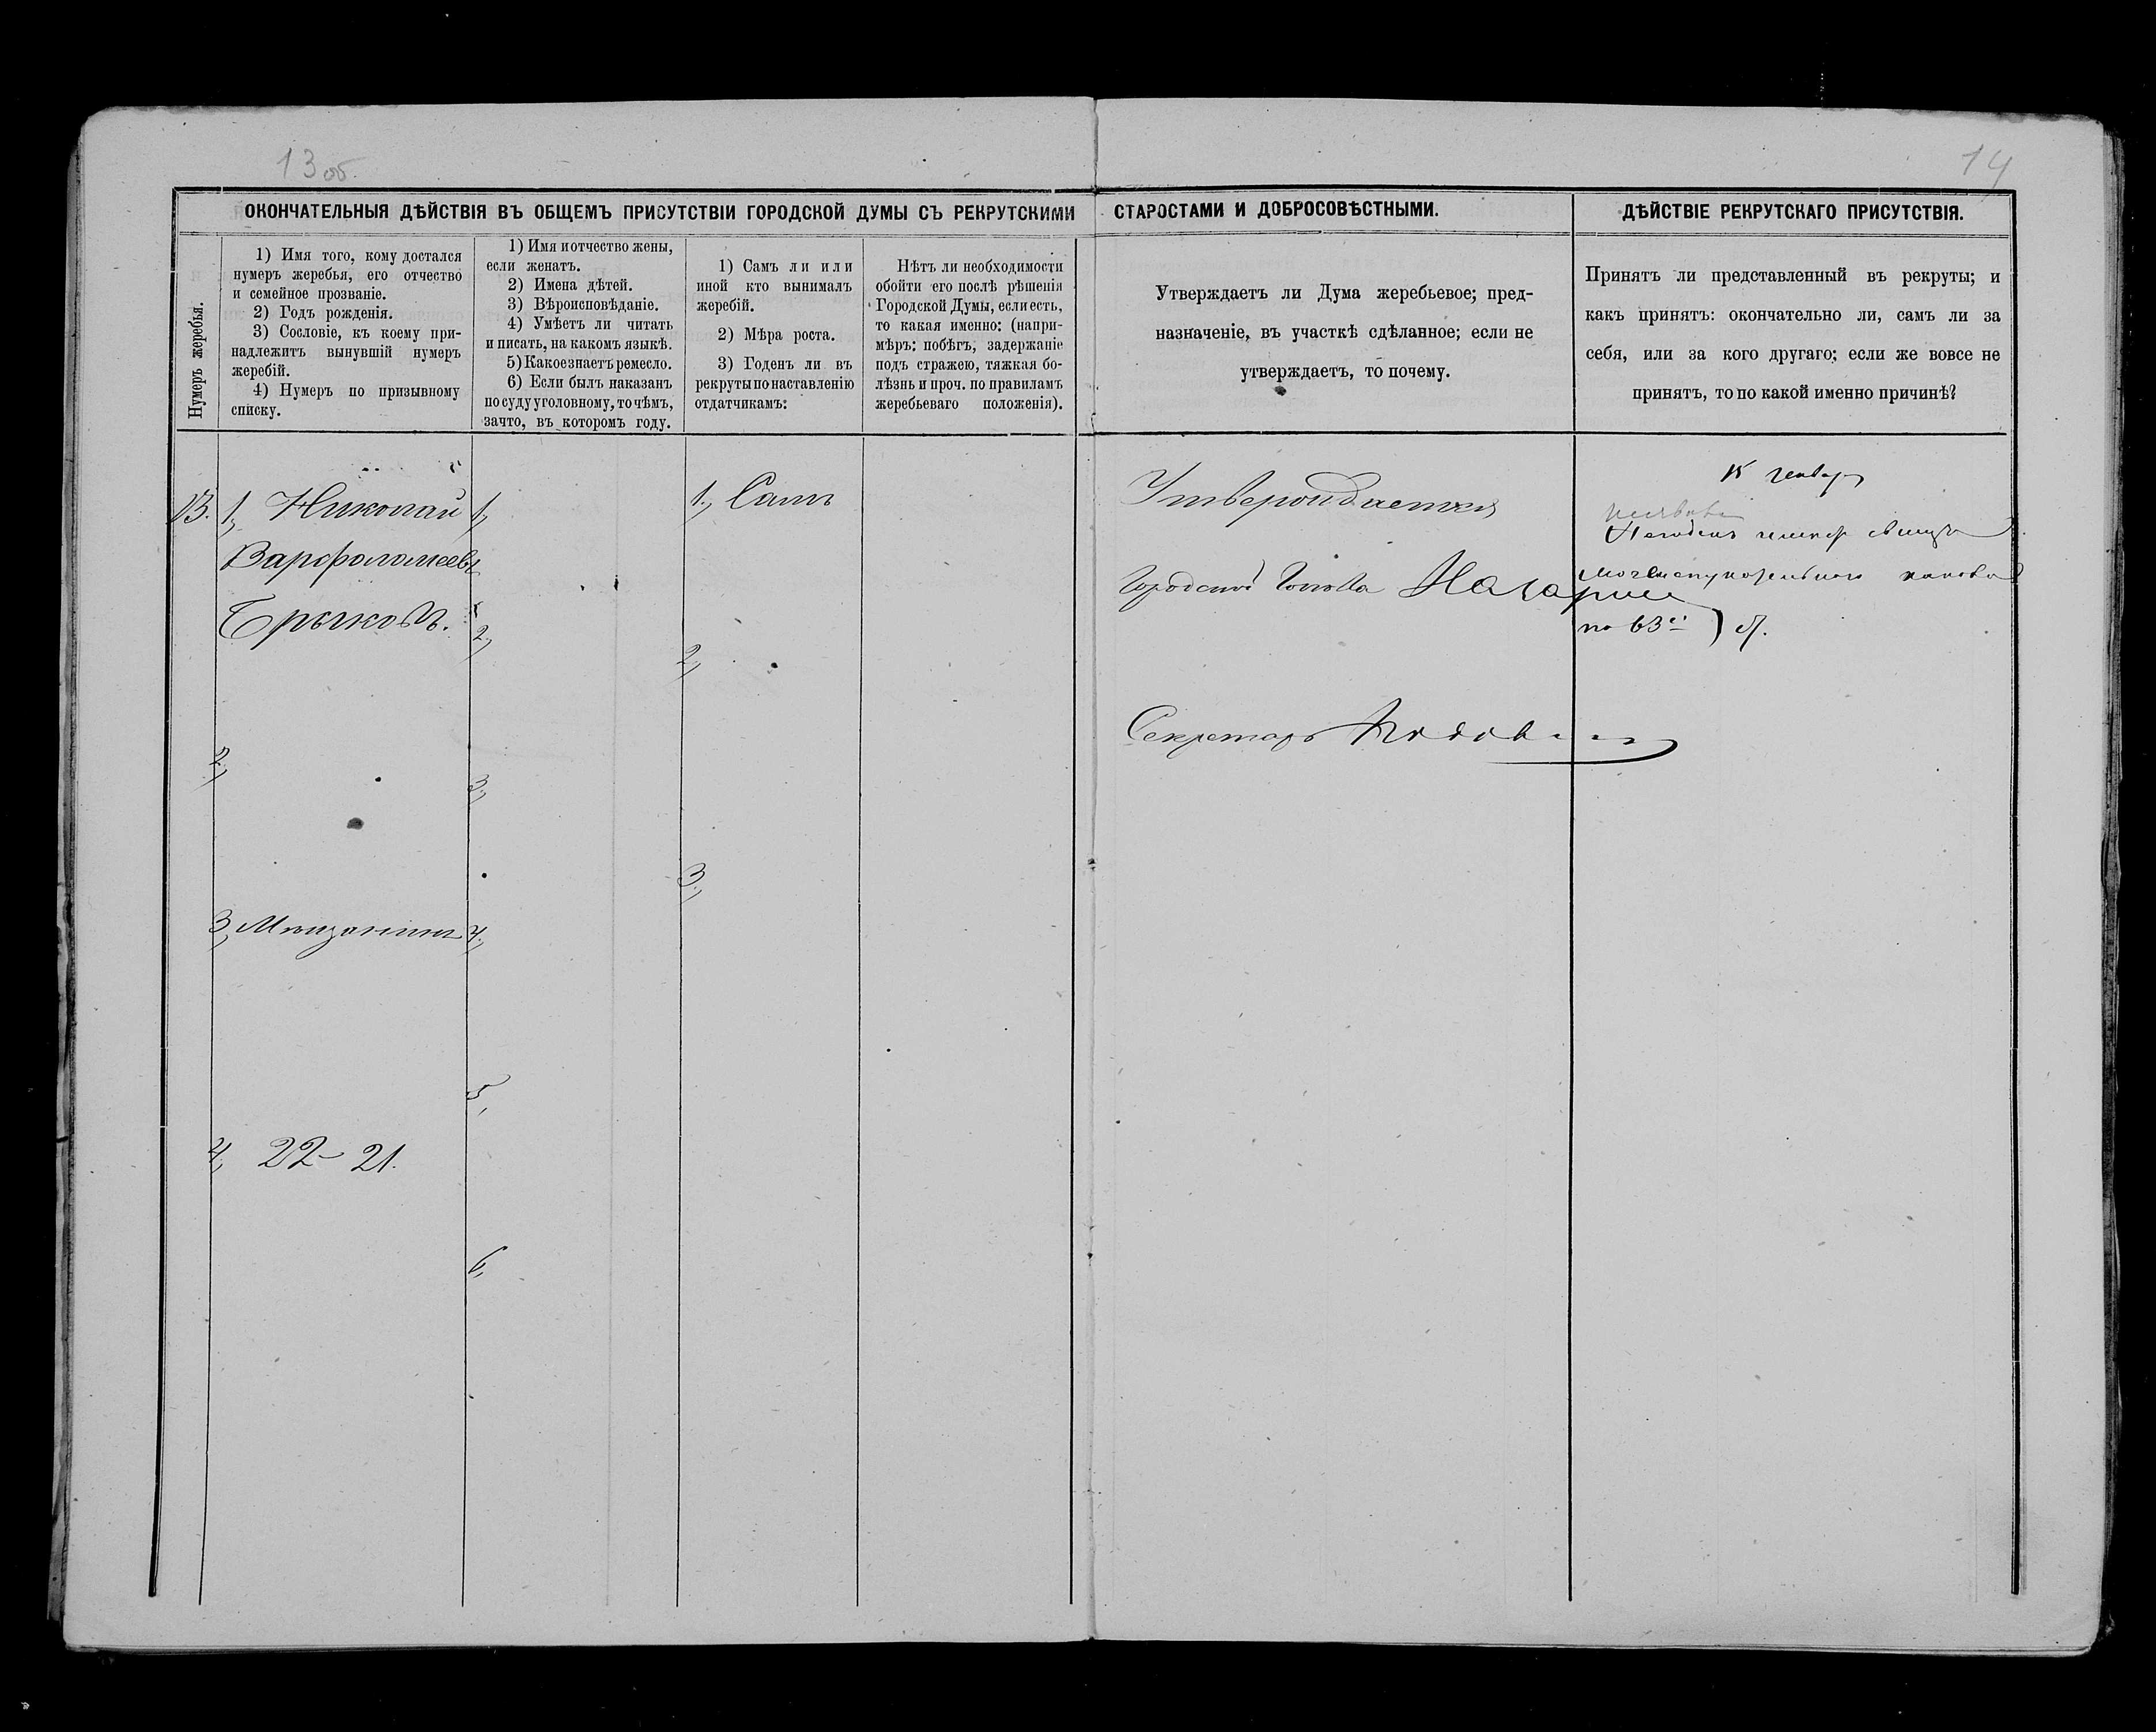 13 об.
14
ОКОНЧАТЕЛЬНЫЯ ДѢЙСТВІЯ ВЪ ОБЩЕМЪ ПРИСУТСТВІИ ГОРОДСКОЙ ДУМЫ СЪ РЕКРУТСКИМИ СТАРОСТАМИ И ДОБРОСОВѢСТНЫМИ.
ДѢЙСТВІЕ РЕКРУТСКАГО ПРИСУТСТВІЯ.
Нумеръ жеребья.
1) Имя того, кому достался
нумеръ жеребья, его отчество
и семейное прозваніе.
2) Годъ рожденія.
3) Сословіе, къ коему при-
надлежитъ вынувшій нумеръ
жеребій.
4) Нумеръ по призывному
списку.
1) Имя и отчество жены,
если женатъ.
2) Имена дѣтей.
3) Вѣроисповѣданіе.
4) Умѣетъ ли читать
и писать, на какомъ языкѣ.
5) Какое знаетъ ремесло.
6) Если былъ наказанъ
по суду уголовному, то чѣмъ,
за что, въ которомъ году.
1) Самъ ли или
иной кто вынималъ
жеребій.
2) Мѣра роста.
3) Годенъ ли въ
рекруты по наставленію
отдатчикамъ:
Нѣтъ ли необходимости
обойти его послѣ рѣшенія
Городской Думы, если есть,
то какая именно: (напри-
мѣръ: побѣгъ, задержаніе
подъ стражею, тяжкая бо-
лѣзнь и проч. по правиламъ
жеребьеваго положенія).
Утверждаетъ ли Дума жеребьевое; пред-
назначеніе, въ участкѣ сдѣланное; если не
утверждаетъ, то почему.
Принятъ ли представленный въ рекруты; и
какъ принятъ: окончательно ли, самъ ли за
себя, или за кого другаго; если же вовсе не
принятъ, то по какой именно причинѣ?
13.
1, Николай
Варфоломеевъ
Брыковъ.
2,
3, Мѣщанинъ
4, 22 - 21.
1,
2,
3,
4,
5,
6,
1, Самъ
2,
3,
Утверждается
Городской Голова
Секретарь
15 генваря
Негоденъ
по 63й